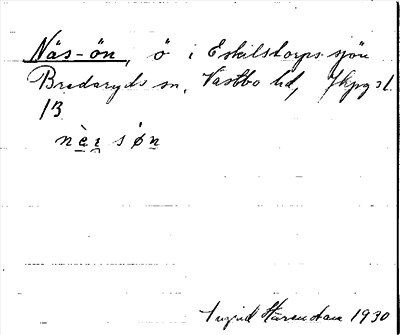 Näs-ön, ö i Eskilstorpssjön
Bredaryds sn, Västbo hd, Jkpgs l.
13
nèr̥ søn
Ingrid 1930